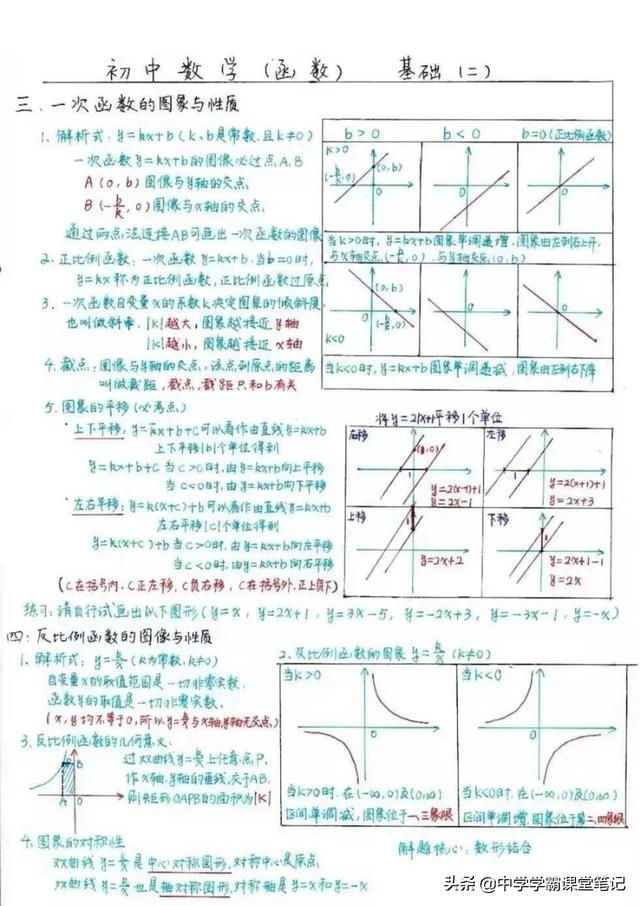 初中数学(函数) 基础(二)
三.一次函数的图象与性质
1、解析式: y=kx+b (k、b是常数,且k≠0)
一次函数y=kx+b的图像必过点A.B
A(0,b)图像与y轴的交点
B(-b/k,0)图像与x轴的交点
通过两点法连接AB可画出一次函数的图像
2.正比例函数:一次函数y=kx+b.当b=0时,
y=kx称为正比例函数,正比例函数过原点
3.一次函数自变量x的系数k决定图象的倾斜度,
也叫做斜率,|k|越大,图象越接近y轴
|k|越小,图象越接近x轴
4.截点:图像与y轴的交点,该点到原点的距离
叫做截距,截点,截距只和b有关
b>0 b<0 b=0(正比例函数)
k>0
(0,b)
(-b/k,0)
0
0
当k>0时,y=kx+b图象单调递增,图象由左到右上升,
与x轴交点(-b/k,0),与y轴交点(0,b)
(0,b)
(-b/k,0)
k<0
0
0
当k<0时,y=kx+b图象单调递减,图象由左到右下降
5.图象的平移(必考点)
上下平移:y=kx+b+c可以看作由直线y=kx+b
上下平移|b|个单位得到
y=kx+b+c 当c>0时,由y=kx+b向上平移
当c<0时,由y=kx+b向下平移
左右平移:y=k(x+c)+b可以看作由直线y=kx+b
左右平移|c|个单位得到
y=k(x+c)+b 当c>0时,由y=kx+b向左平移
当c<0时,由y=kx+b向右平移
(C在括号内,C正左移,C负右移,C在括号外,正上负下)
将y=2x+1平移1个单位
右移
y=2(x-1)+1
y=2x-1
左移
y=2(x+1)+1
y=2x+3
上移
y=2x+2
下移
y=2x+1-1
y=2x
练习:请自行试画出以下图形(y=x, y=2x+1, y=3x-5, y=-2x+3, y=-3x-1, y=-x)
四:反比例函数的图像与性质
1.解析式: y=k/x (k为常数,k≠0)
自变量x的取值范围是一切非零实数,
函数y的取值是一切非零实数,
(x,y均不等于0,所以y=k/x与x轴,y轴无交点)
3.反比例函数的几何意义:
过双曲线y=k/x上任意点P,
作x轴.y轴的垂线,交于AB,
则矩形OAPB的面积为|k|
P B
A 0
4.图象的对称性
双曲线y=k/x是中心对称图形,对称中心是原点,
双曲线y=k/x也是轴对称图形,对称轴是y=x和y=-x
2、反比例函数的图象y=k/x (k≠0)
当k>0
0
当k>0时.在(-∞,0)及(0,∞)
区间单调减,图象位于一、三象限
当k<0
0
当k<0时.在(-∞,0)及(0,∞)
区间单调增,图象位于第二、四象限
解题核心:数形结合
头条 @中学学霸课堂笔记